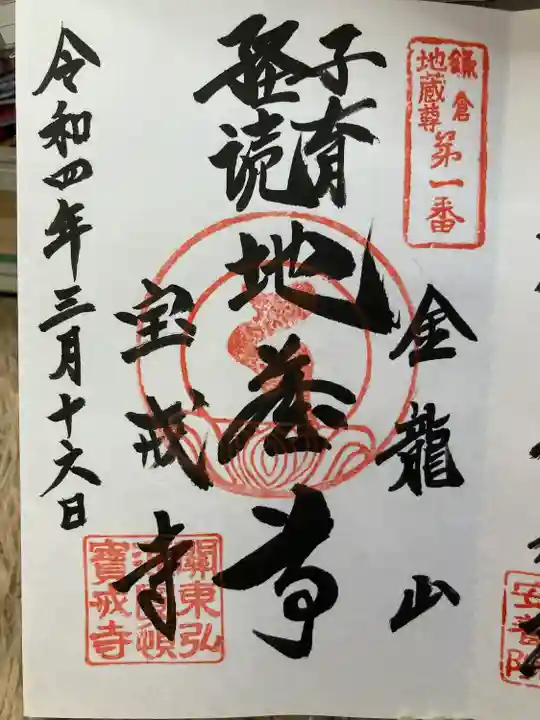 鎌倉
地蔵尊
第一番
金龍山
子育
経読
地蔵尊
宝戒寺
關東弘
寶戒寺
令和四年三月十六日
安養院